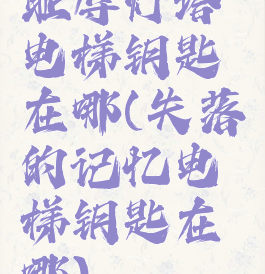 耻辱灯塔
电梯钥匙
在哪(失落
的记忆电
梯钥匙在
哪)